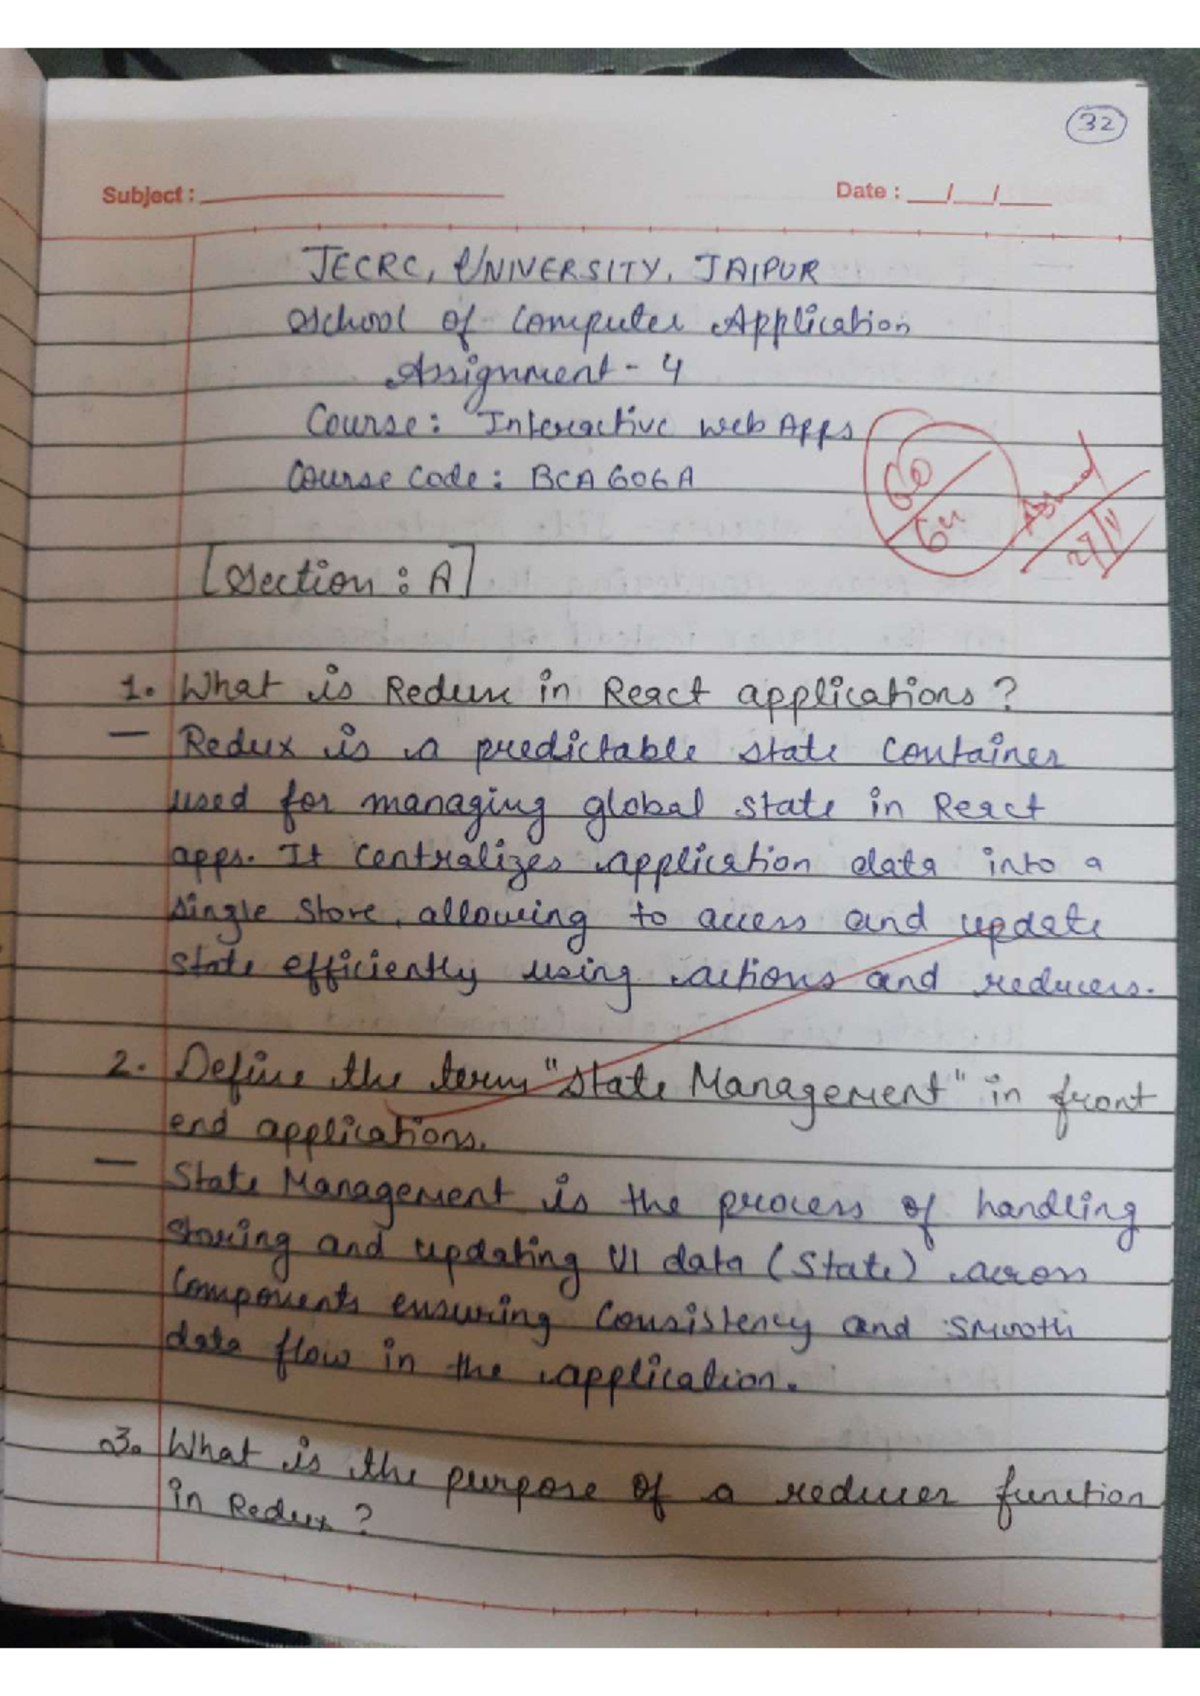 32
Subject : Date : __/__/__
JECRC, UNIVERSITY, JAIPUR
School of Computer Application
Assignment - 4
Course: Interactive web Apps
Course Code: BCA606A
60/64
27/11
[Section : A]
1. What is Redux in React applications?
— Redux is a predictable state container
used for managing global state in React
apps. It centralizes application data into a
single store, allowing to access and update
state efficiently using actions and reducers.
2. Define the term "State Management" in front
end applications.
— State Management is the process of handling
storing and updating UI data (State) across
components ensuring consistency and smooth
data flow in the application.
3. What is the purpose of a reducer function
in Redux?